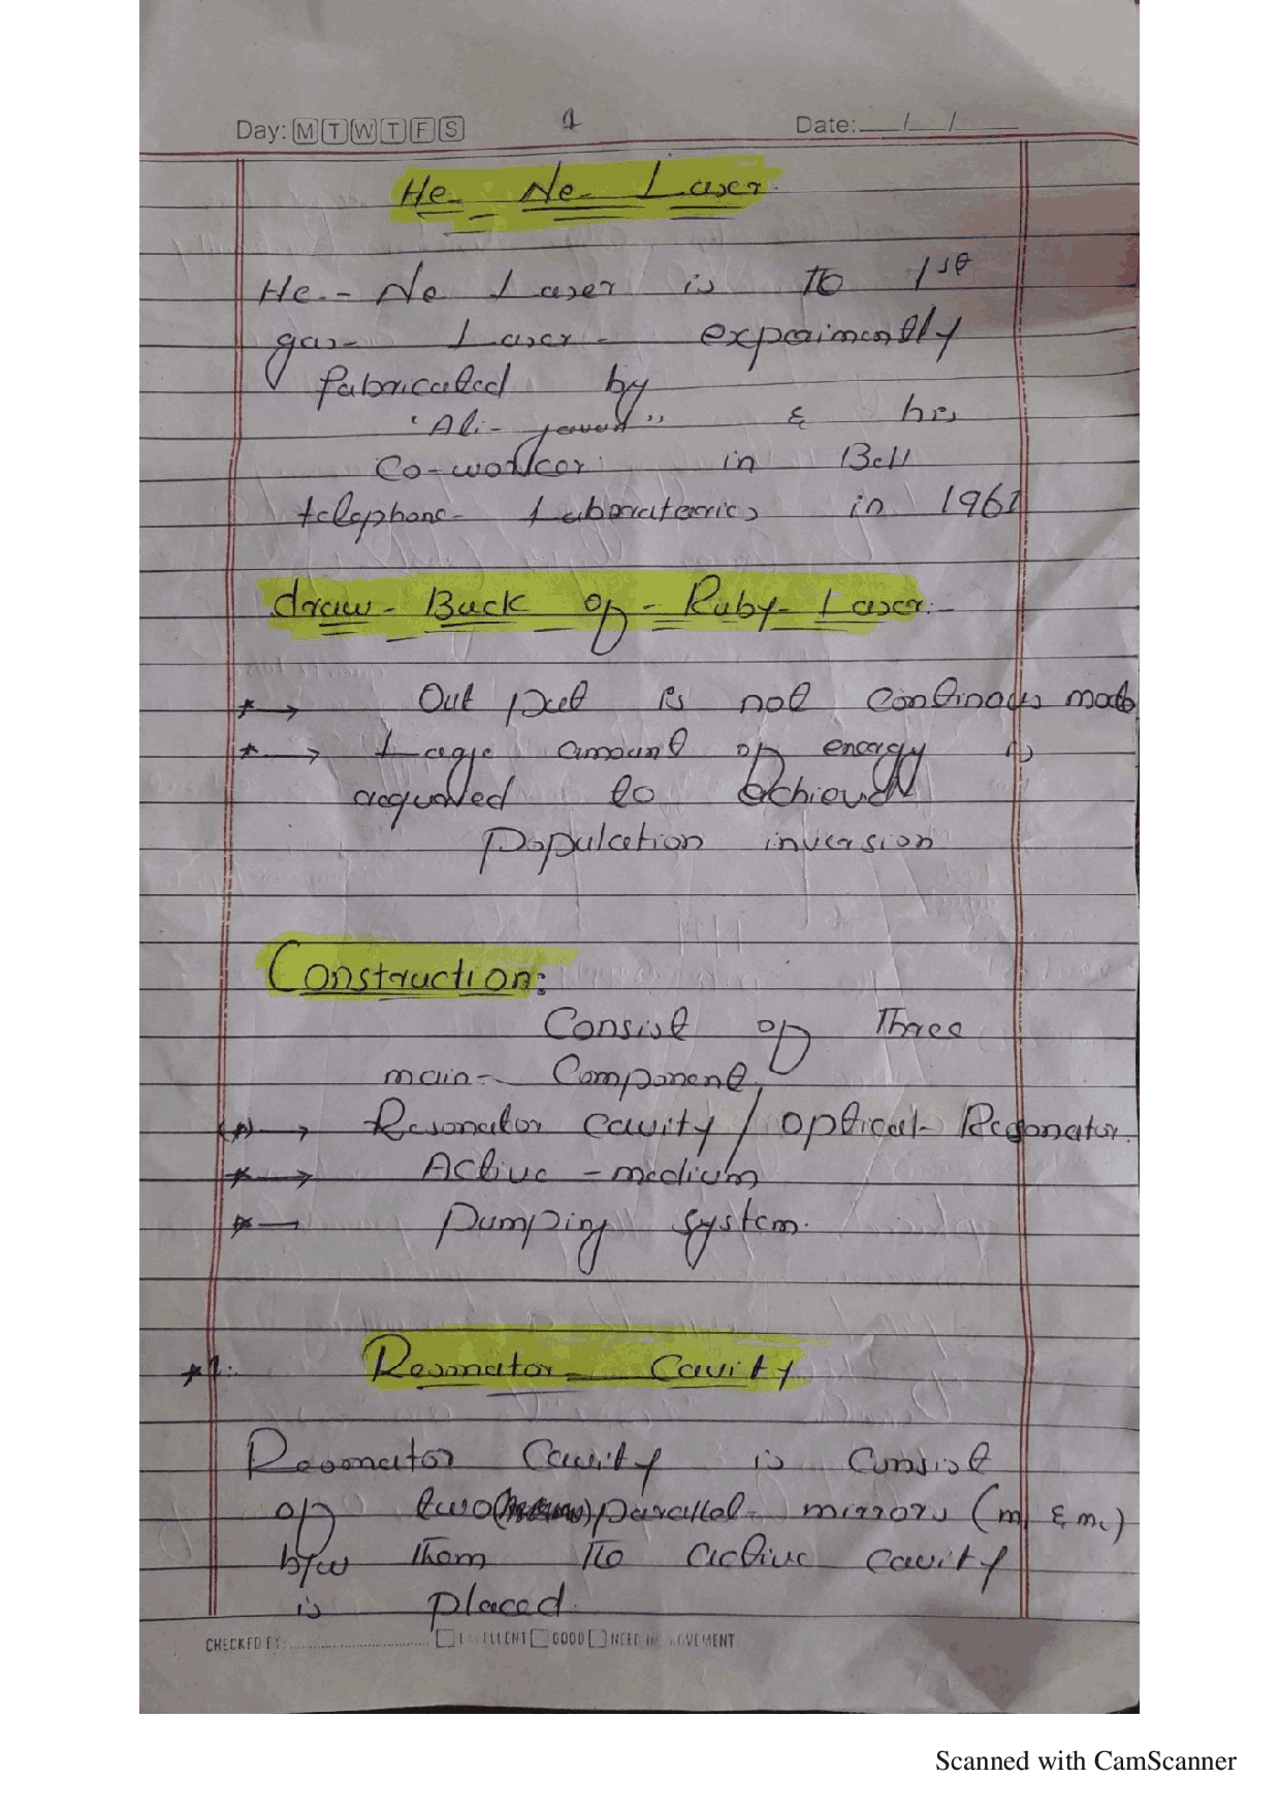 Day: M T W T F S 1 Date: __/__/__
He- Ne- Laser.
He.- Ne Laser is the 1st
gas- Laser- expeimently
fabricated by
"Ali- javan" & his
Co-worker in Bell
telephone- Laboratories in 1961
draw- Back of - Ruby- Laser.-
*→ Out put is not Continous mode
*→ Lage amount of energy is
acquired to achieved
Population inversion
Construction:
Consist of Three
main- Component,
*→ Resonator Cavity / optical- Resonator.
*→ Active - medium
*→ Pumping system.
*1:- Resonator- Cavity
Resonator Cavity is Consist
of two parallel- mirrors (m1 & m2)
b/w Them The active cavity
is placed.
CHECKED BY: EXCELLENT GOOD NEED IMPROVEMENT
Scanned with CamScanner